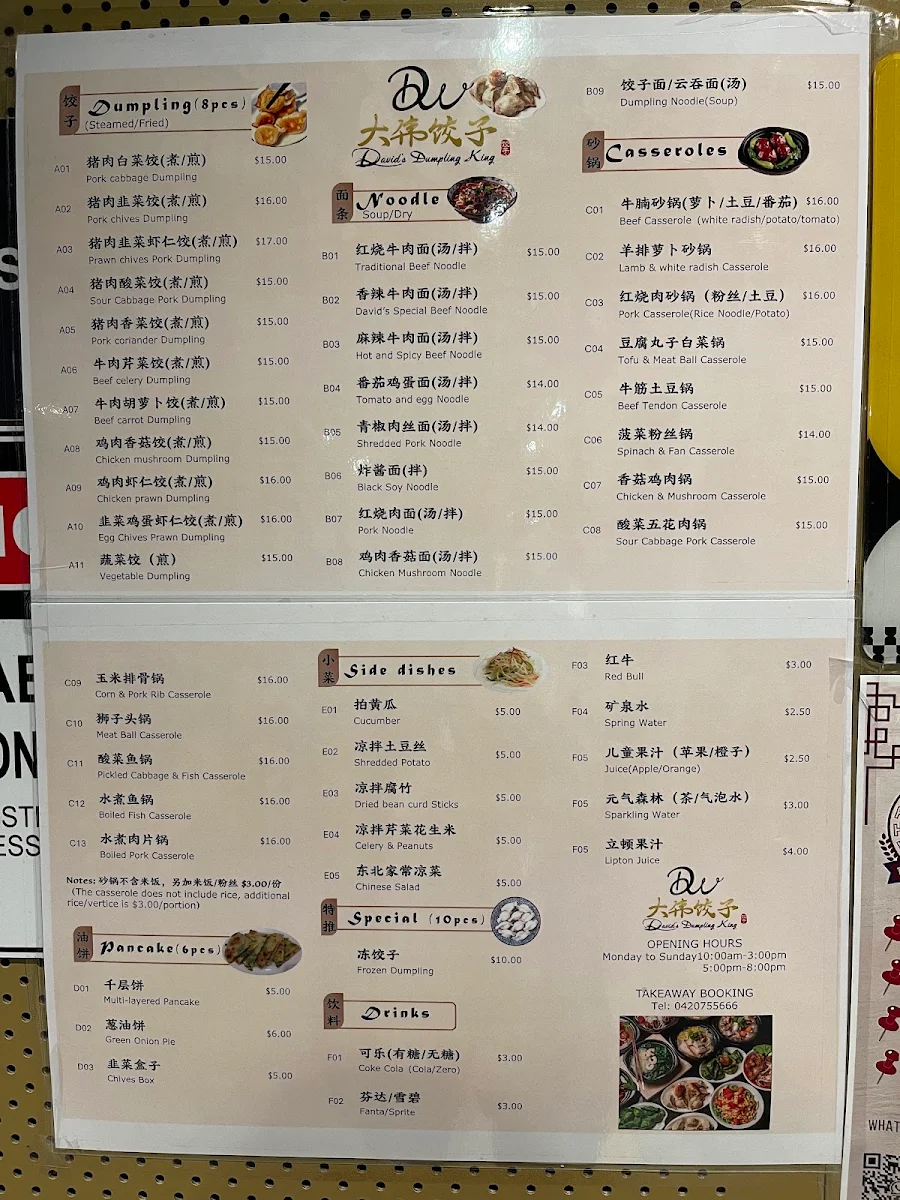 饺子
Dumpling(8pcs)
(Steamed/Fried)
A01 猪肉白菜饺(煮/煎) $15.00
Pork cabbage Dumpling
A02 猪肉韭菜饺(煮/煎) $16.00
Pork chives Dumpling
A03 猪肉韭菜虾仁饺(煮/煎) $17.00
Prawn chives Pork Dumpling
A04 猪肉酸菜饺(煮/煎) $15.00
Sour Cabbage Pork Dumpling
A05 猪肉香菜饺(煮/煎) $15.00
Pork coriander Dumpling
A06 牛肉芹菜饺(煮/煎) $15.00
Beef celery Dumpling
A07 牛肉胡萝卜饺(煮/煎) $15.00
Beef carrot Dumpling
A08 鸡肉香菇饺(煮/煎) $15.00
Chicken mushroom Dumpling
A09 鸡肉虾仁饺(煮/煎) $16.00
Chicken prawn Dumpling
A10 韭菜鸡蛋虾仁饺(煮/煎) $16.00
Egg Chives Prawn Dumpling
A11 蔬菜饺（煎) $15.00
Vegetable Dumpling
DW
大祎饺子
David's Dumpling King
面条
Noodle
Soup/Dry
B01 红烧牛肉面(汤/拌) $15.00
Traditional Beef Noodle
B02 香辣牛肉面(汤/拌) $15.00
David's Special Beef Noodle
B03 麻辣牛肉面(汤/拌) $15.00
Hot and Spicy Beef Noodle
B04 番茄鸡蛋面(汤/拌) $14.00
Tomato and egg Noodle
B05 青椒肉丝面(汤/拌) $14.00
Shredded Pork Noodle
B06 炸酱面(拌) $15.00
Black Soy Noodle
B07 红烧肉面(汤/拌) $15.00
Pork Noodle
B08 鸡肉香菇面(汤/拌) $15.00
Chicken Mushroom Noodle
B09 饺子面/云吞面(汤) $15.00
Dumpling Noodle(Soup)
砂锅
Casseroles
C01 牛腩砂锅(萝卜/土豆/番茄) $16.00
Beef Casserole (white radish/potato/tomato)
C02 羊排萝卜砂锅 $16.00
Lamb & white radish Casserole
C03 红烧肉砂锅（粉丝/土豆） $16.00
Pork Casserole(Rice Noodle/Potato)
C04 豆腐丸子白菜锅 $15.00
Tofu & Meat Ball Casserole
C05 牛筋土豆锅 $15.00
Beef Tendon Casserole
C06 菠菜粉丝锅 $14.00
Spinach & Fan Casserole
C07 香菇鸡肉锅 $15.00
Chicken & Mushroom Casserole
C08 酸菜五花肉锅 $15.00
Sour Cabbage Pork Casserole
C09 玉米排骨锅 $16.00
Corn & Pork Rib Casserole
C10 狮子头锅 $16.00
Meat Ball Casserole
C11 酸菜鱼锅 $16.00
Pickled Cabbage & Fish Casserole
C12 水煮鱼锅 $16.00
Boiled Fish Casserole
C13 水煮肉片锅 $16.00
Boiled Pork Casserole
Notes: 砂锅不含米饭，另加米饭/粉丝 $3.00/份
(The casserole does not include rice, additional
rice/vertice is $3.00/portion)
油饼
Pancake(6pcs)
D01 千层饼 $5.00
Multi-layered Pancake
D02 葱油饼 $6.00
Green Onion Pie
D03 韭菜盒子 $5.00
Chives Box
小菜
Side dishes
E01 拍黄瓜 $5.00
Cucumber
E02 凉拌土豆丝 $5.00
Shredded Potato
E03 凉拌腐竹 $5.00
Dried bean curd Sticks
E04 凉拌芹菜花生米 $5.00
Celery & Peanuts
E05 东北家常凉菜 $5.00
Chinese Salad
特推
Special (10pcs)
冻饺子 $10.00
Frozen Dumpling
饮料
Drinks
F01 可乐(有糖/无糖) $3.00
Coke Cola (Cola/Zero)
F02 芬达/雪碧 $3.00
Fanta/Sprite
F03 红牛 $3.00
Red Bull
F04 矿泉水 $2.50
Spring Water
F05 儿童果汁（苹果/橙子） $2.50
Juice(Apple/Orange)
F05 元气森林（茶/气泡水） $3.00
Sparkling Water
F05 立顿果汁 $4.00
Lipton Juice
DW
大祎饺子
David's Dumpling King
OPENING HOURS
Monday to Sunday10:00am-3:00pm
5:00pm-8:00pm
TAKEAWAY BOOKING
Tel: 0420755666
WHAT